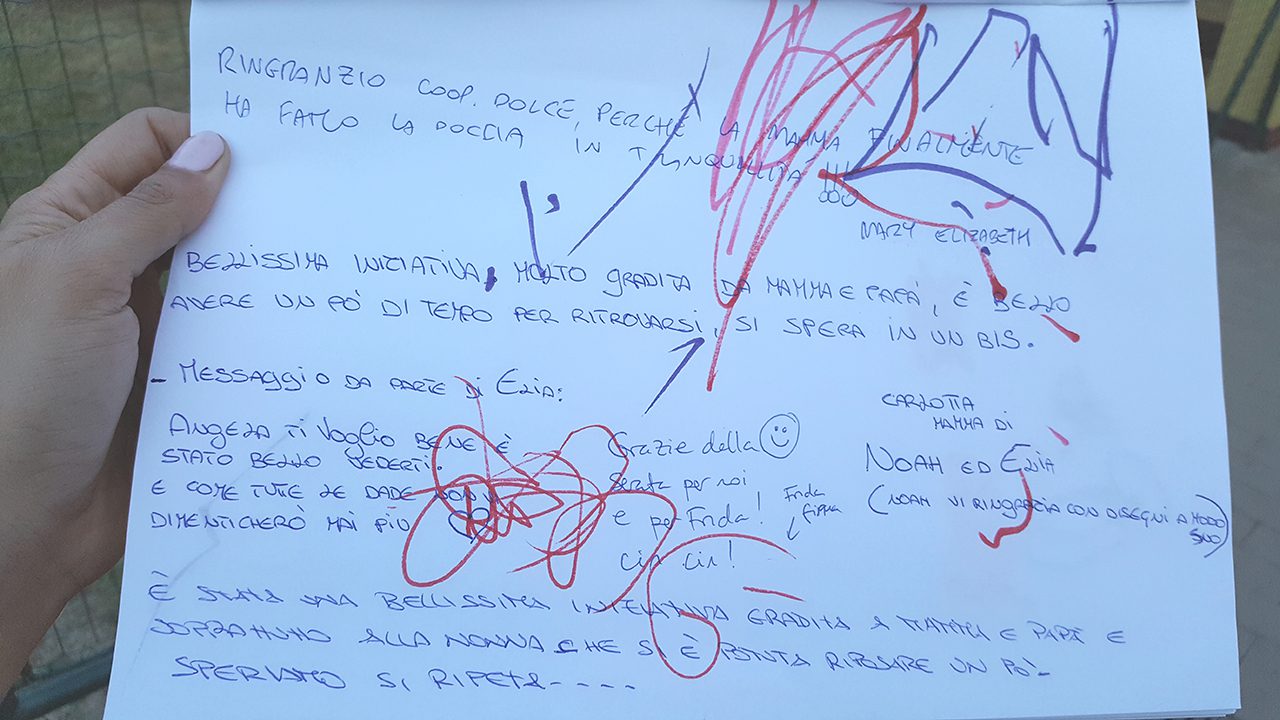 RINGRANZIO COOP. DOLCE, PERCHÈ LA MAMMA FINALMENTE
HA FATTO LA DOCCIA IN TRANQUILLITÀ !!!
MARY ELIZABETH
BELLISSIMA INIZIATIVA, MOLTO GRADITA DA MAMMA E PAPÀ, È BELLO
AVERE UN PÒ DI TEMPO PER RITROVARSI, SI SPERA IN UN BIS.
- MESSAGGIO DA PARTE DI ELIA:
ANGELA TI VOGLIO BENE È
STATO BELLO VEDERTI.
E COME TUTE LE DADE NON VI
DIMENTICHERÒ MAI PIÙ
CARLOTTA
MAMMA DI
NOAH ED ELIA
(NOAH VI RINGRAZIA CON DISEGNI A MODO
SUO)
Grazie della
serata per noi
e per Frida!
cin cin!
Frida
firma
È STATA UNA BELLISSIMA INIZIATIVA GRADITA A MAMMA E PAPÀ E
SOPRATTUTTO ALLA NONNA CHE SI È POTUTA RIPOSARE UN PÒ-
SPERIAMO SI RIPETA----